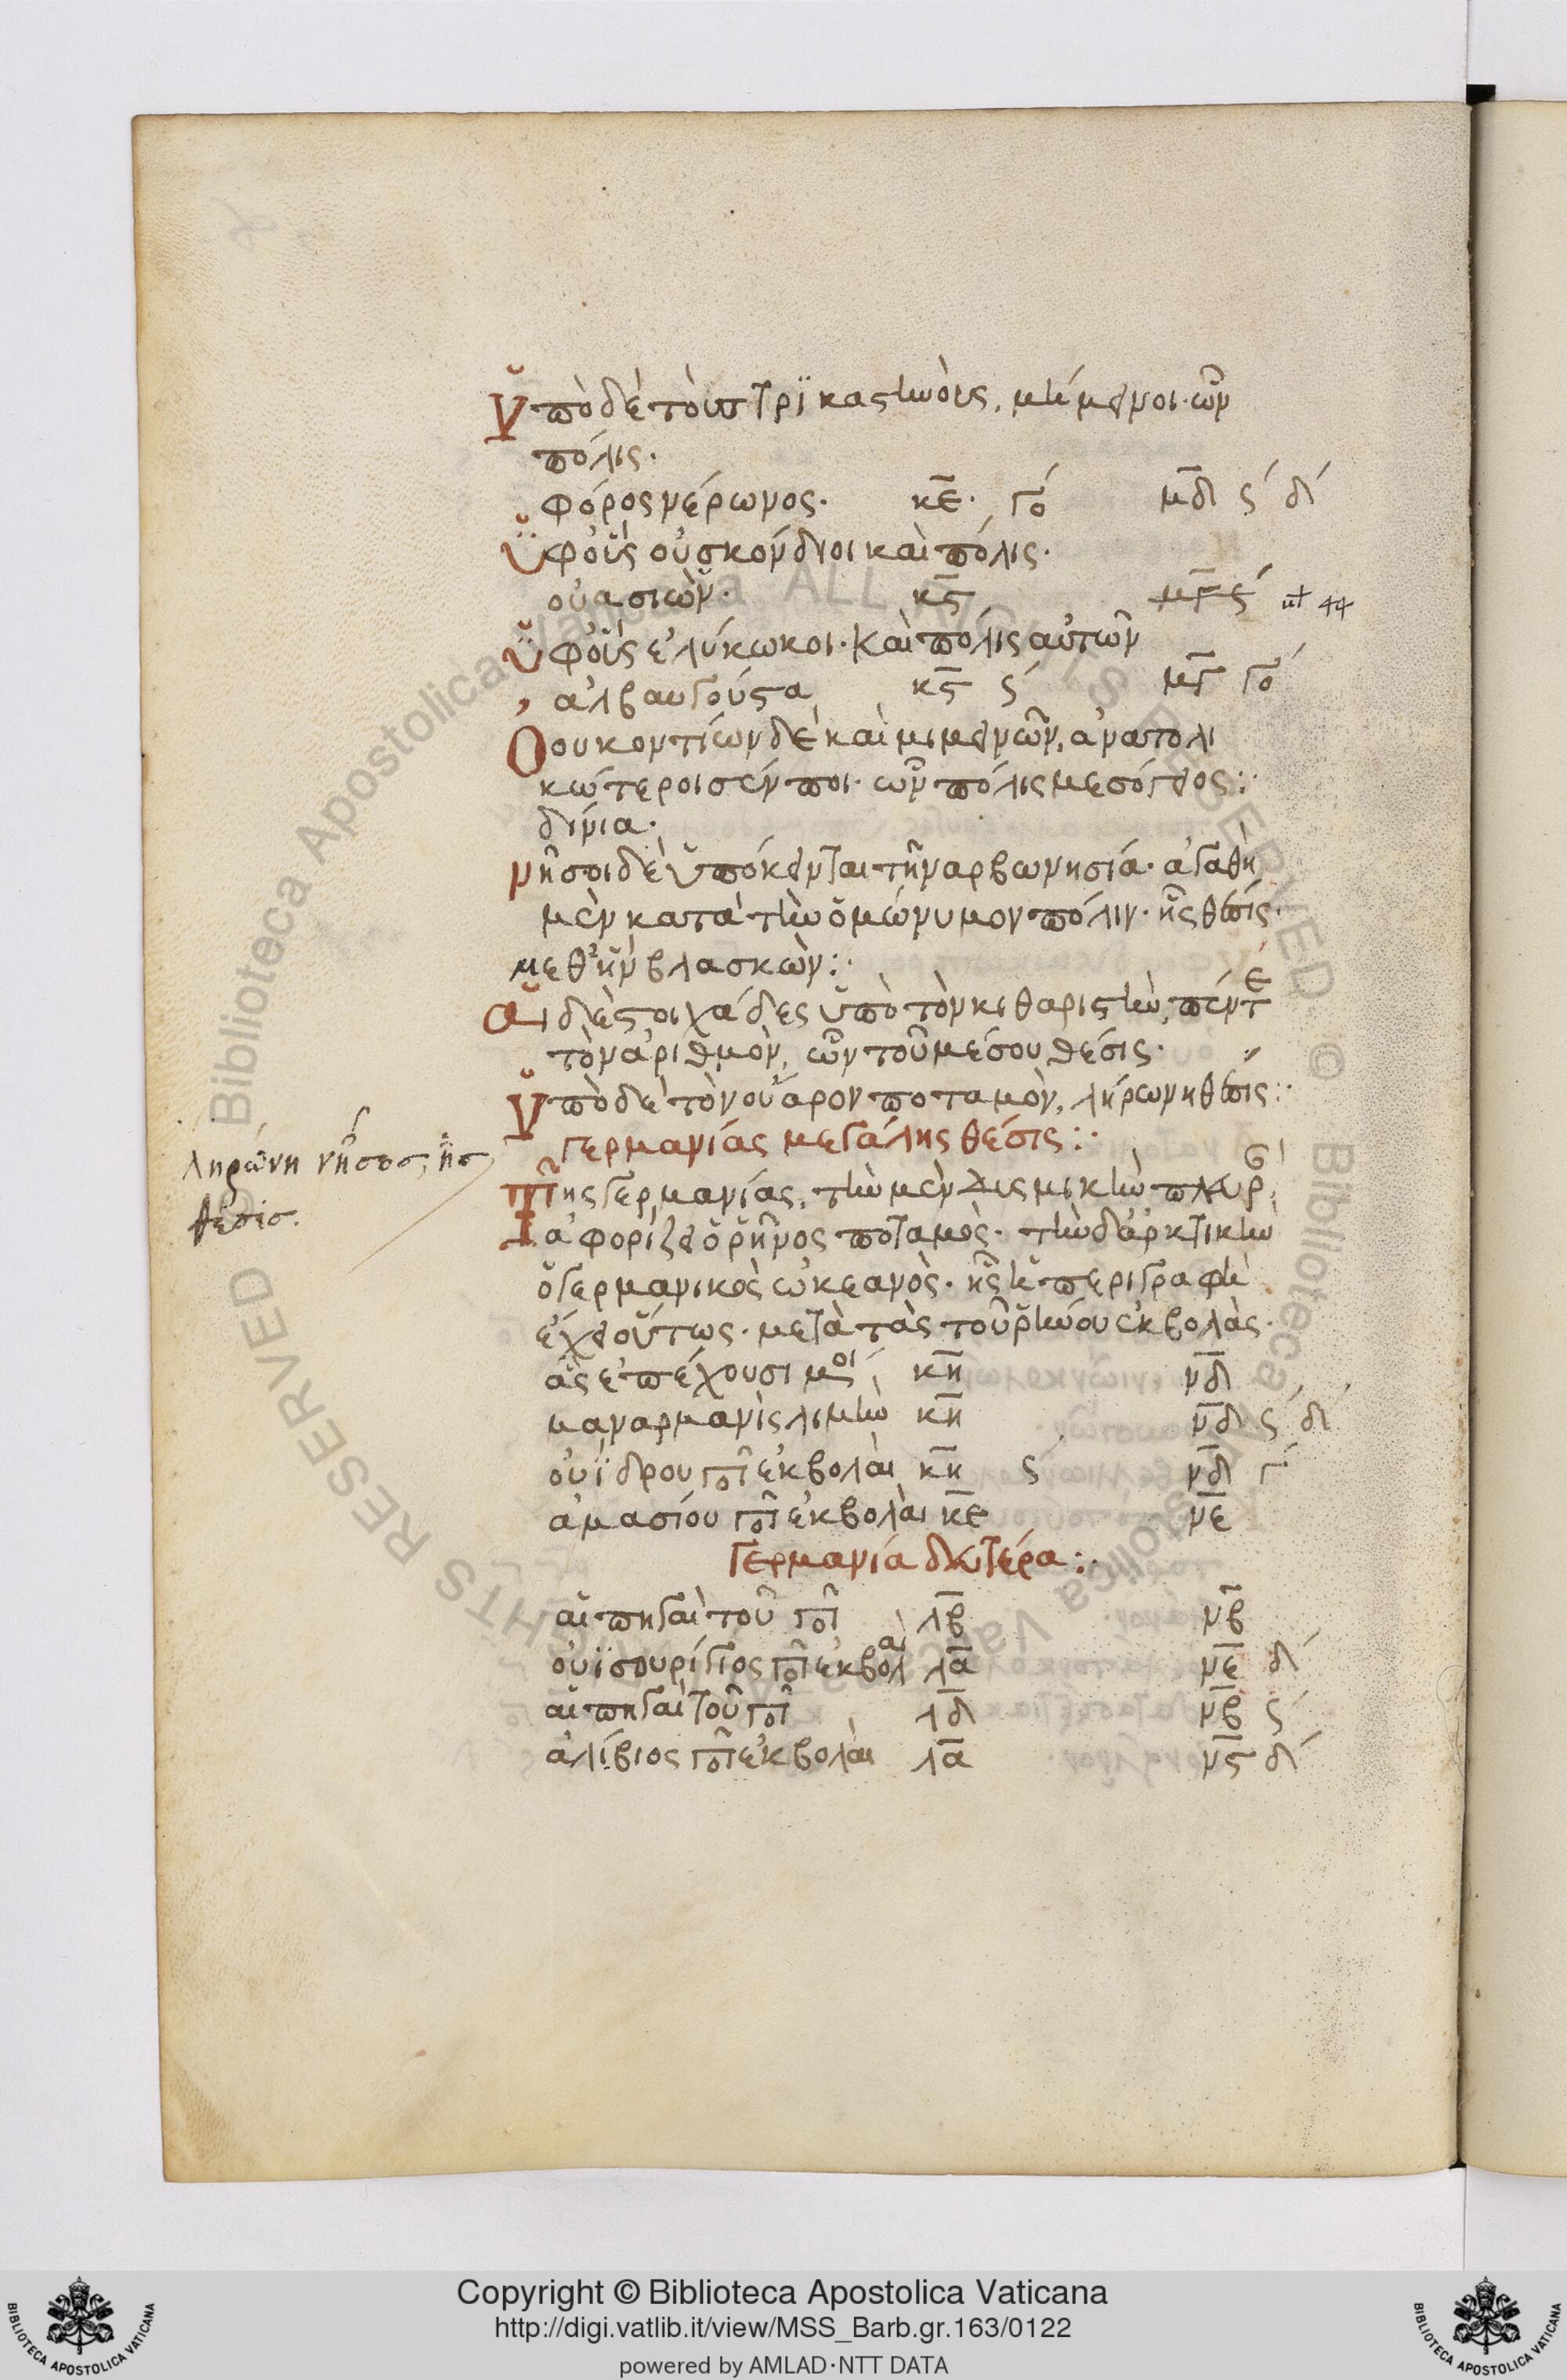 Ὑπὸ δὲ τοὺς τρϊκαστηνοὺς, μημενοι· ὧν
πόλις·
φόρος νέρωνος· κε· γο΄ μδ ϛ΄ δ΄
ὑφ' οὓς οὐσκόνδιοι καὶ πόλις·
οὐασιών· κϛ
ὑφ' οὓς ἐλύκωκοι· καὶ πόλις αὐτῶν
ἀλβαυγούστα κϛ ϛ΄ μγ γο΄
Οουκοντίων δὲ καὶ μιμενῶν, ἀνατολι
κώτεροι σέντιοι· ὧν πόλις μεσόγειος:·
δινία·
νῆσοι δὲ ὑπόκεινται τῆ ναρβωνησία· ἀγαθὴ
μὲν κατὰ τὴν ὁμώνυμον πόλιν· ἧς θέσις·
μεθ' ἣν βλασκών:·
Αἱ δὲ στοιχάδες ὑπὸ τὸν κιθαριστὴν, πέντε
τὸν ἀριθμὸν, ὧν τοῦ μέσου θέσις·
Ὑπὸ δὲ τὸν οὐᾶρον ποταμὸν, λήρωνη θέσις:·
ληρώνη νῆσος, ἧς
θέσις.
Γερμανίας μεγάλης θέσις:·
Τῆς γερμανίας, τὴν μὲν δυσμικὴν πλευρ
ἀφορίζει ὁ ῥῆνος ποταμὸς· τὴν δ' ἀρκτικὴν
ὁ γερμανικὸς ὠκεανὸς· ἧς ἡ περιγραφὴ
ἔχει οὕτως· μετὰ τὰς τοῦ ῥήνου ἐκβολὰς·
ἃς ἐπέχουσι μοι κη νδ
μαναρμανὶς λιμὴν κη νδ ϛ΄ δ΄
οὐΐδρου ποτ ἐκβολαὶ κη ϛ΄ νδ γ΄
ἀμασίου ποτ ἐκβολαὶ κε νε
Γερμανία δευτέρα:·
αἱ πηγαὶ τοῦ ποτ λβ νβ
οὐϊσουρίγιος ποτ ἐκβολαὶ λα νε δ΄
αἱ πηγαὶ τοῦ ποτ λδ νβ ϛ΄
ἀλίβιος ποτ ἐκβολαὶ λα νϛ δ΄
Copyright © Biblioteca Apostolica Vaticana
http://digi.vatlib.it/view/MSS_Barb.gr.163/0122
powered by AMLAD·NTT DATA